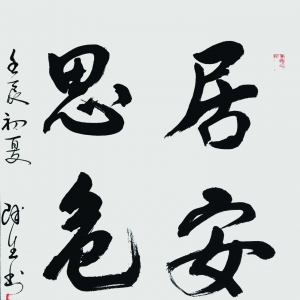 居安
思危
壬辰初夏